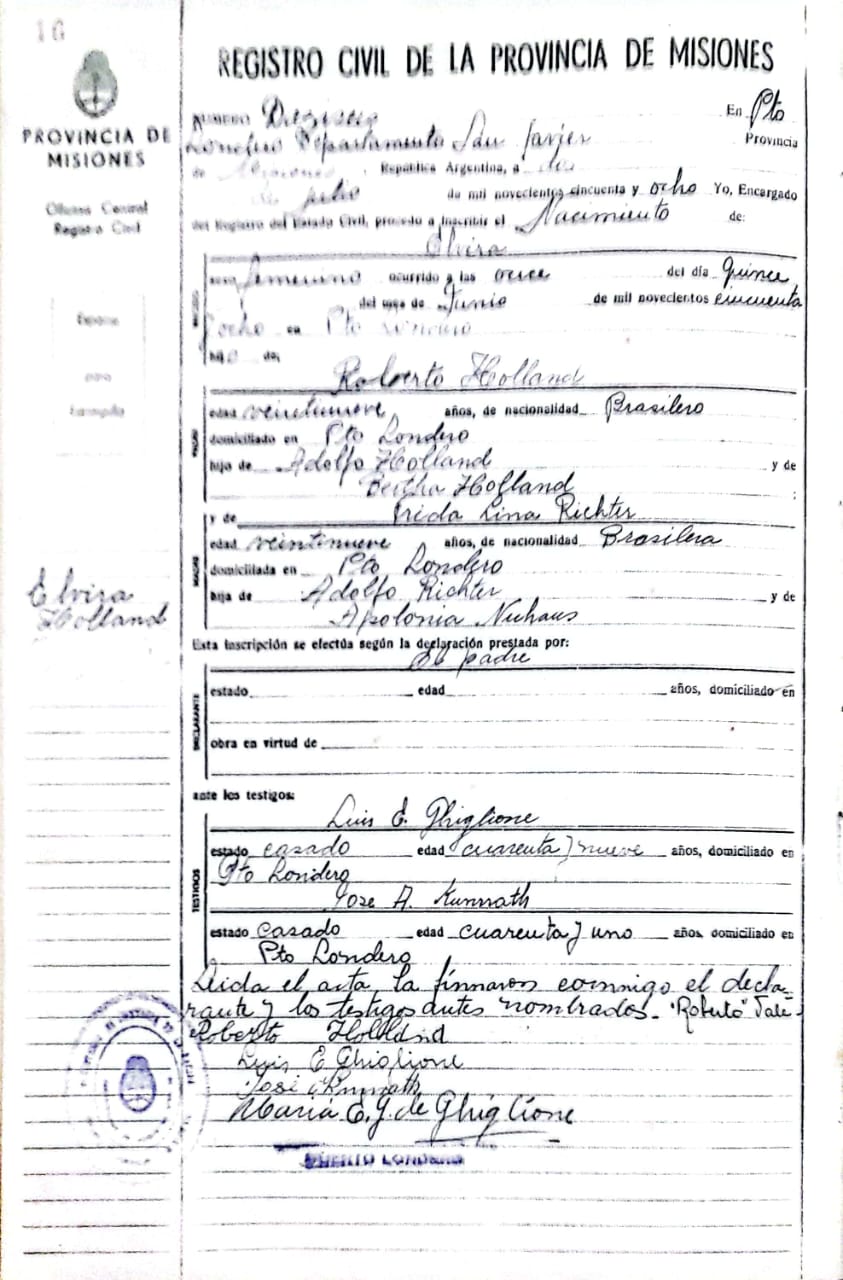 16
REGISTRO CIVIL DE LA PROVINCIA DE MISIONES
PROVINCIA DE
MISIONES
Oficina Central
Registro Civil
NUMERO En Pto
Londero Departamento San Javier Provincia
de Misiones, República Argentina, a dos
de julio de mil novecientos cincuenta y ocho Yo, Encargado
del Registro del Estado Civil, procedo a inscribir el Nacimiento de:
Elvira
sexo femenino ocurrido a las once del día quince
del mes de Junio de mil novecientos cincuenta
y ocho en Pto Londero
hija de,
Roberto Holland
edad veintinueve años, de nacionalidad Brasilero
domiciliado en Pto Londero
hijo de Adolfo Holland y de
Bertha Holland ;
y de Frida Lina Richter
edad veintinueve años, de nacionalidad Brasilera
domiciliada en Pto Londero
hija de Adolfo Richter y de
Apolonia Nuhaus
Elvira
Holland
Esta inscripción se efectúa según la declaración prestada por:
El padre
DECLARANTE
estado edad años, domiciliado en
obra en virtud de
ante los testigos:
Luis E. Ghiglione
TESTIGOS
estado casado edad cuarenta y nueve años, domiciliado en
Pto Londero
Jose A. Kunrath
estado casado edad cuarenta y uno años, domiciliado en
Pto Londero
Leida el acta, la firmaron conmigo el decla-
rante y los testigos antes nombrados. "Roberto" Vale-
Roberto Holland
Luis E Ghiglione
José A Kunrath
Maria E. G. de Ghiglione
PUERTO LONDERO